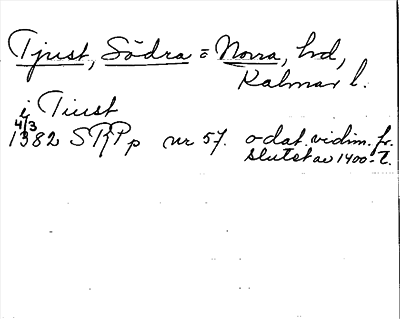 Tjust, Södra = Norra, hd,
Kalmar l.
i Tiust
4/3
1382 SRPp nr 57. odat. vidim. fr.
slutet av 1400-t.